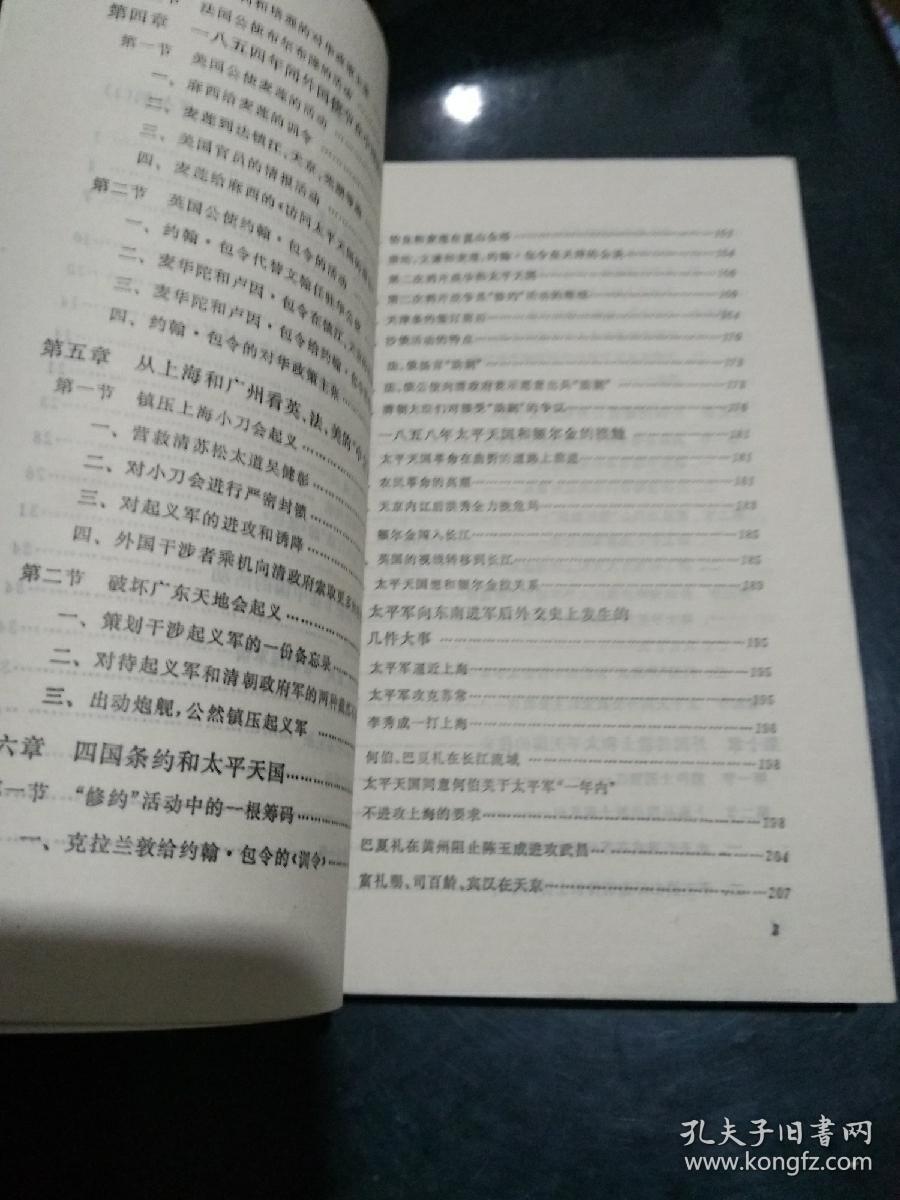 法国公使布尔布隆的活动
第四章 一八五四年间外国使节在
第一节 美国公使麦莲的活动
一、麻西给麦莲的训令
二、麦莲到达镇江、天京、芜湖等地
三、美国官员的情报活动
四、麦莲给麻西的《访问太平天国的
第二节 英国公使约翰·包令的活动
一、约翰·包令代替文翰任驻华公使
二、麦华陀和卢因·包令在镇江、天京
三、麦华陀和卢因·包令给约翰·包令
四、约翰·包令的对华政策主张
第五章 从上海和广州看英、法、美的“中
第一节 镇压上海小刀会起义
一、营救清苏松太道吴健彰
二、对小刀会进行严密封锁
三、对起义军的进攻和诱降
四、外国干涉者乘机向清政府索取更多
第二节 破坏广东天地会起义
一、策划干涉起义军的一份备忘录
二、对待起义军和清朝政府军的两种截然
三、出动炮舰，公然镇压起义军
六章 四国条约和太平天国
一节 “修约”活动中的一根筹码
一、克拉兰敦给约翰·包令的《训令》
怡良和麦莲在昆山会晤 153
第二次鸦片战争和太平天国
天津条约签订前后 164
沙俄活动的特点 170
法、俄扬言“助剿” 173
法、俄公使向清政府表示愿意出兵“助剿” 173
清朝大臣们对接受“助剿”的争议 176
一八五八年太平天国和额尔金的接触 181
太平天国革命在曲折的道路上前进 181
农民革命的高潮 181
天京内讧后洪秀全力挽危局 183
额尔金闯入长江 185
英国的视线转移到长江 185
太平天国想和额尔金拉关系 189
太平军向东南进军后外交史上发生的
几件大事 195
太平军逼近上海 195
太平军攻克苏常 195
李秀成一打上海 196
何伯、巴夏礼在长江流域 198
太平天国同意何伯关于太平军“一年内”
不进攻上海的要求 198
巴夏礼在黄州阻止陈玉成进攻武昌 204
富礼赐、司百龄、宾汉在天京 207
3
孔夫子旧书网
www.kongfz.com